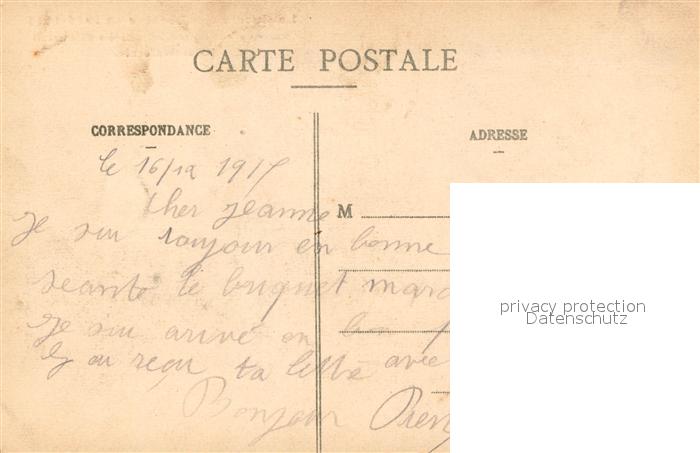 CARTE POSTALE
CORRESPONDANCE
ADRESSE
le 16/12 1917
Cher Jeanne
M
je sui toujour en bonne
seante le briquet marc
je sui arivé on bon
ta lettre avec
Bonjour Pier
privacy protection
Datenschutz